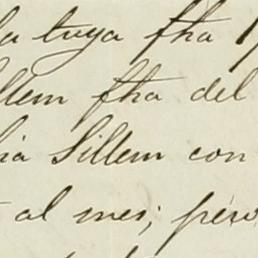 la tuya fha 1
illem fha del
ia Sillem con
al mes; pero